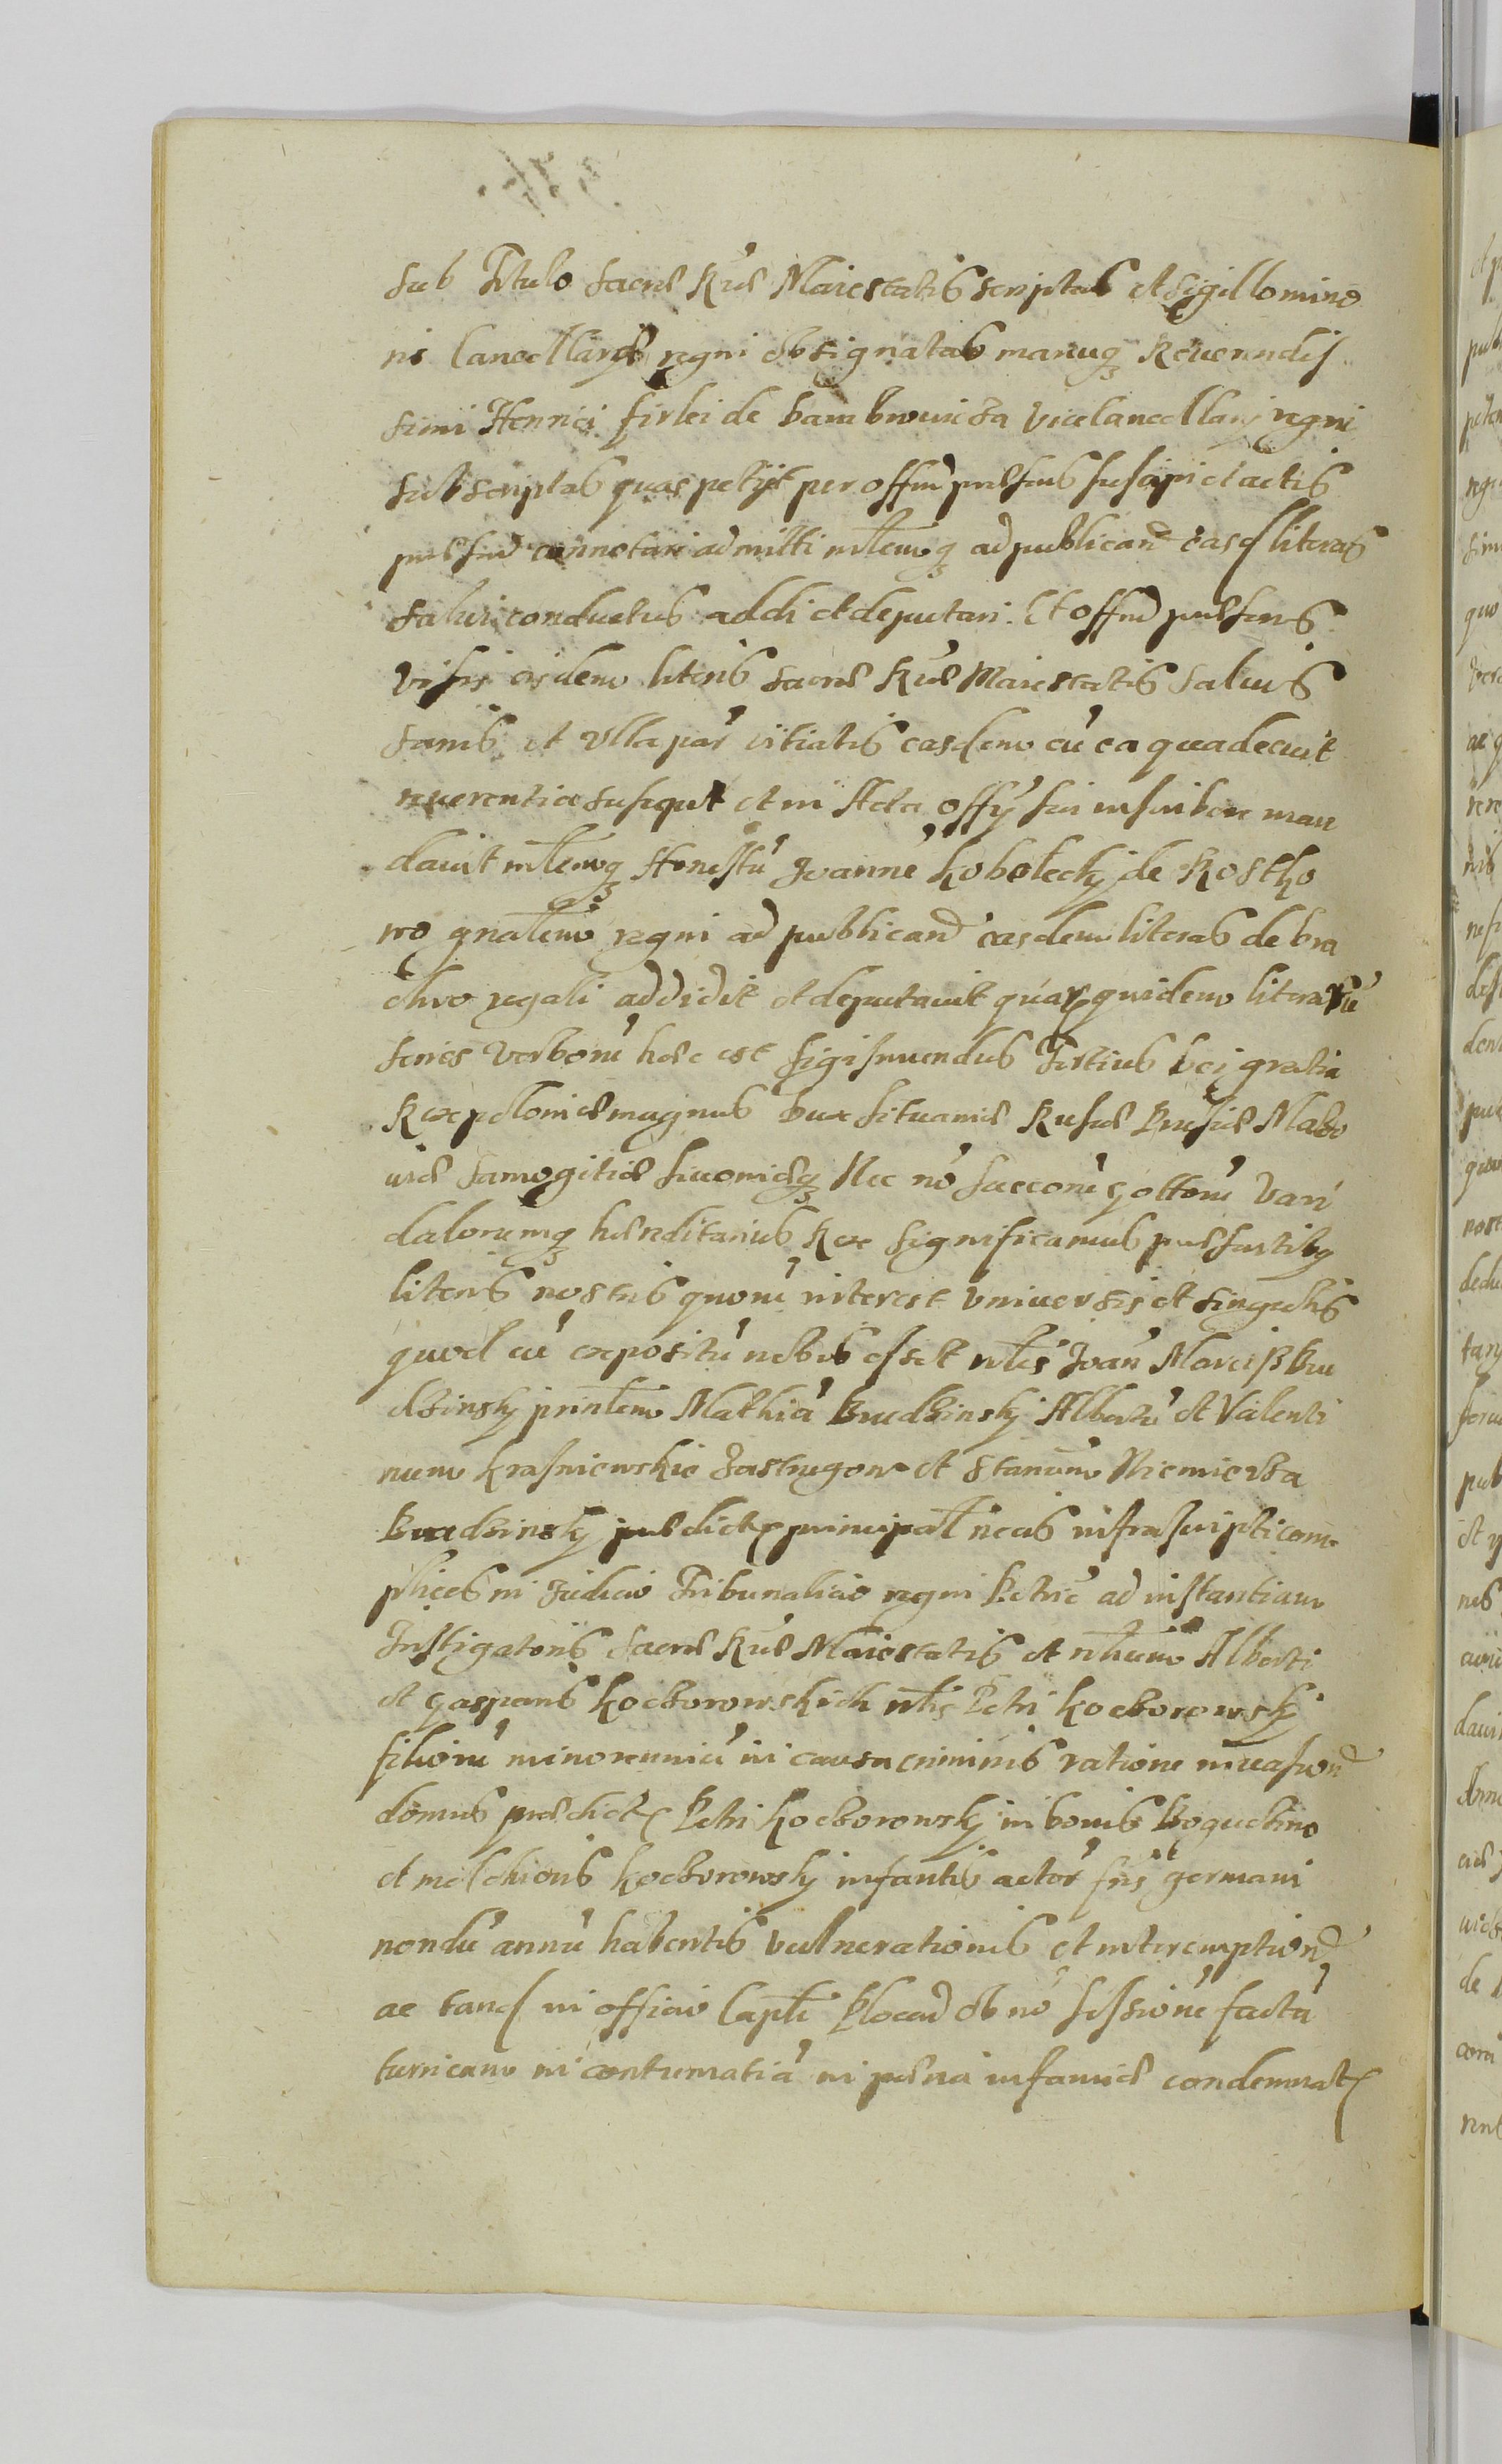 sub Titulo Sacræ Ræ Maiestatis scriptas et sigillo mino
ris Cancellariæ regni obsignatas manuq₃ Reuerendis
simi Henrici firlei de Dambrouicza Vicecancellarij regni
subscriptas quas petijt per offm præsens suscipi et actis
præsentib connotari admitti mlemq₃ ad publicand easd literas
salui conductus addi et deputari. Et offm præsens
visis eisdem literis Sacræ Ræ Maiestatis saluis
sanis et Vlla par vitiatis easdem cu ea qua decuit
reuerentia suscepit et in Acta offy sui inscribere man
dauit mlemq₃ Honestu Joanne Kobelecky de Rostko
wo gnalem regni ad publicand easdem literas de bra
chio regali addidit et deputauit quar quidem literaru
series verboru hæc est Sigismundus Tertius Dei gratia
Rex poloniæ magnus Dux Lituaniæ Rusiæ Prusiæ Mazo
uiæ Samogitiæ Liuoniæq₃ Nec no Suecoru gottoru Van
dalorumq₃ hæreditarius Rex significamus præsentibq
literis nostris quoru interest Vniuersis et singulis
quod cu expositu nobis esset nles Joan Marcisz Bu
dzinsky prinlem Mathia Budzinsky Albertu et Valenti
num Krasniewskie Jastrzgon et Stanum Niemierza
Budzinsky prædict principal neas infrascripti com
plices in Judicio Tribunalicio regni Petric ad instantiam
Instigatoris Sacræ Ræ Maiestatis et nlium Alberti
et gasparis Koczorowskich nlis Petri Koczorowsky
filioru minorenniu in causa criminis ratione inuasion
domus prædict Petri Koczorowsky in bonis Bogucino
et melchioris Koczorowsky infantis actor fris germani
nondu annu habentis vulnerationis et interemption
ac tand in officio Capli Plocen ob no sessione facta
turricam in contumatia in pæna infamiæ condemnat